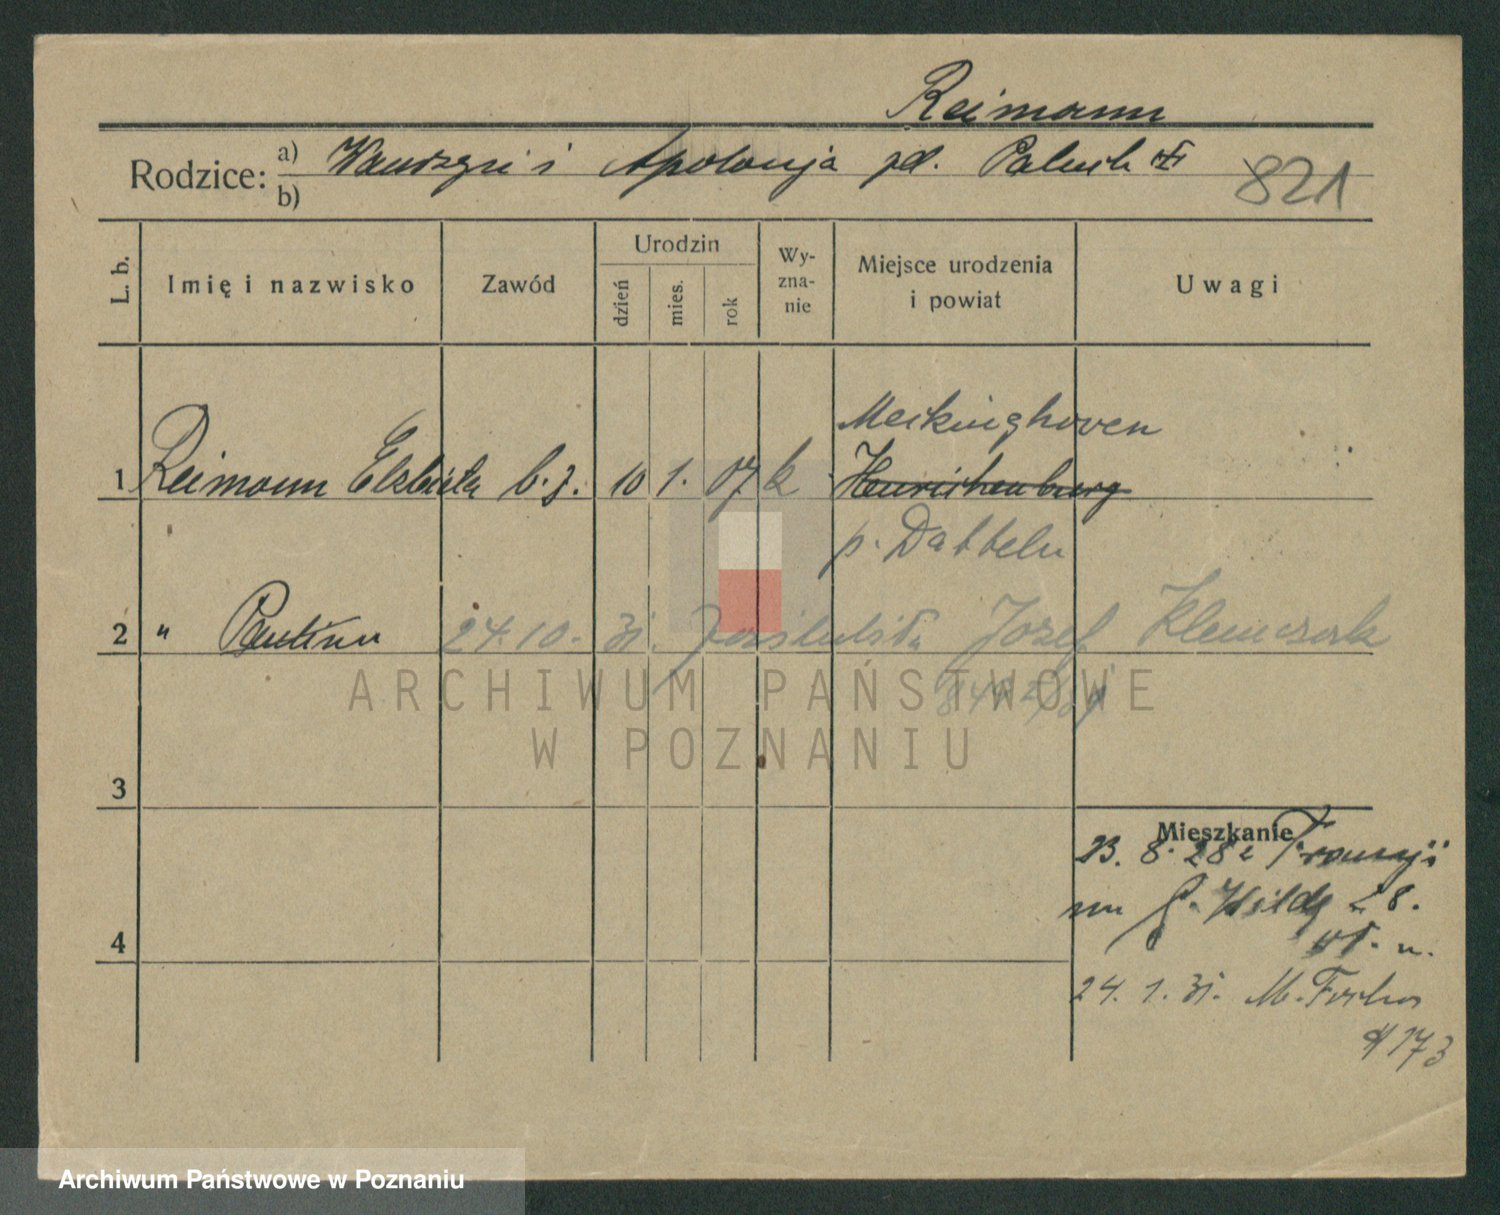 Reimann
Rodzice: a) Wawrzyn i Apolonja zd. Paluch
b)
821
L. b.
Imię i nazwisko
Zawód
Urodzin
dzień
mies.
rok
Wy-
zna-
nie
Miejsce urodzenia
i powiat
Uwagi
Meckinghoven
1 Reimann Elżbieta b. z. 10 1. 07 k Henrichenburg
p. Datteln
2 " Paulina 24. 10. 31. Józef Klemczak
3
Mieszkanie
23. 8. 28 z Francji
na G. Wildę 28.
24. 1. 31. M. Focha
173
4
ARCHIWUM PAŃSTWOWE
W POZNANIU
Archiwum Państwowe w Poznaniu